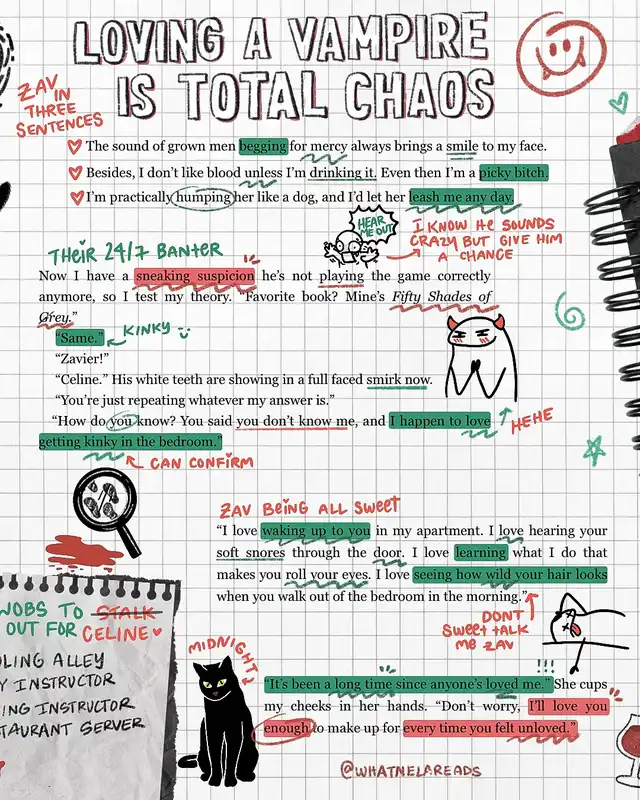 LOVING A VAMPIRE
IS TOTAL CHAOS
ZAV
IN
THREE
SENTENCES
The sound of grown men begging for mercy always brings a smile to my face.
Besides, I don't like blood unless I'm drinking it. Even then I'm a picky bitch.
I'm practically humping her like a dog, and I'd let her leash me any day.
HEAR
ME OUT
I KNOW HE SOUNDS
CRAZY BUT GIVE HIM
A CHANCE
THEIR 24/7 BANTER
Now I have a sneaking suspicion he's not playing the game correctly
anymore, so I test my theory. "Favorite book? Mine's Fifty Shades of
Grey."
"Same."
KINKY
"Zavier!"
"Celine." His white teeth are showing in a full faced smirk now.
"You're just repeating whatever my answer is."
"How do you know? You said you don't know me, and I happen to love
getting kinky in the bedroom."
HEHE
CAN CONFIRM
ZAV BEING ALL SWEET
"I love waking up to you in my apartment. I love hearing your
soft snores through the door. I love learning what I do that
makes you roll your eyes. I love seeing how wild your hair looks
when you walk out of the bedroom in the morning."
DONT
SWEET TALK
ME ZAV
JOBS TO STALK
OUT FOR CELINE
ALLEY
INSTRUCTOR
INSTRUCTOR
SERVER
MIDNIGHT
!!!
"It's been a long time since anyone's loved me." She cups
my cheeks in her hands. "Don't worry, I'll love you
enough to make up for every time you felt unloved."
@WHATNELAREADS